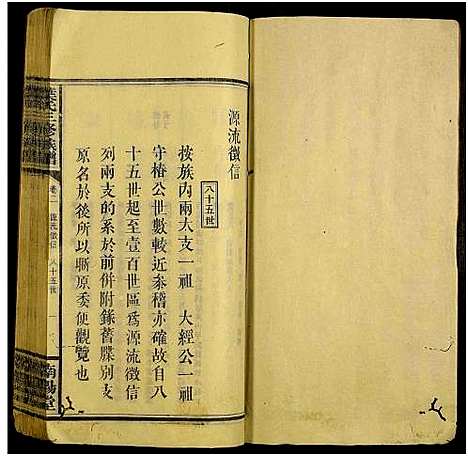 源流徵信
八十五世
按族內兩大支一祖　大經公一祖
守椿公世數較近叅稽亦確故自八
十五世起至壹百世區爲源流徵信
列兩支的系於前併附錄舊牒別支
原名於後所以晰原委便觀覽也
葉氏三修族譜
卷二　源流徵信　八十五世　一
南陽堂